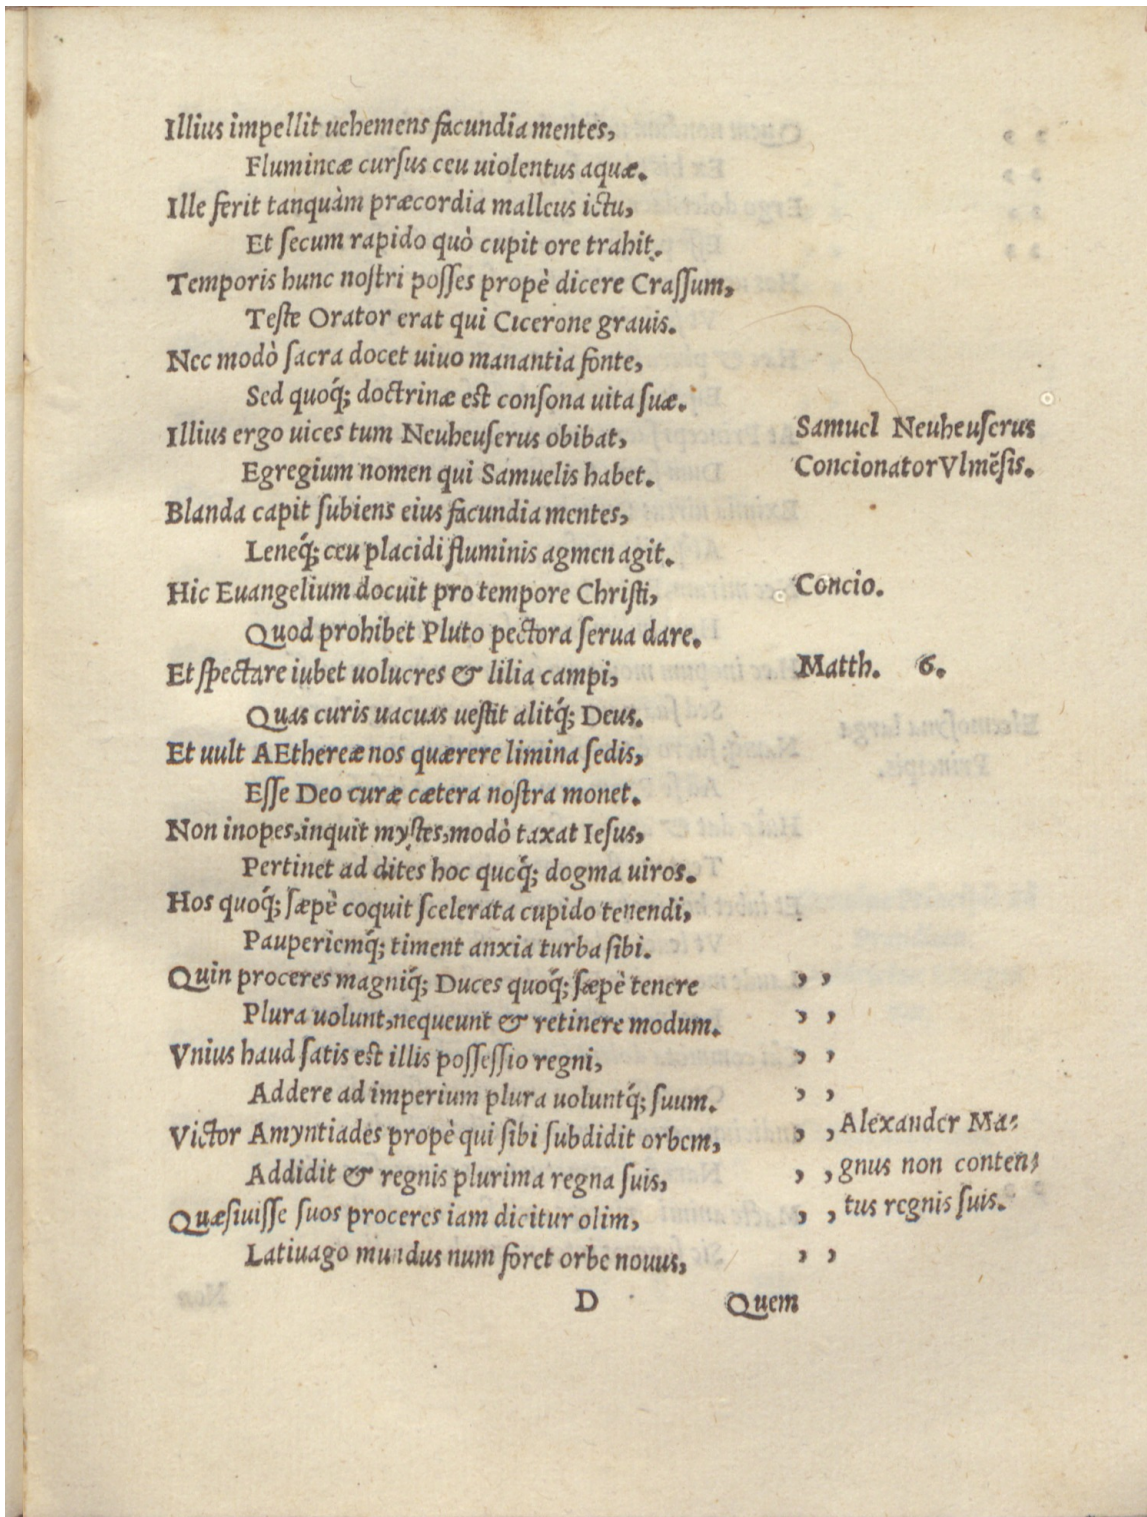 Illius impellit uehemens facundia mentes,
Flumineæ cursus ceu uiolentus aquæ.
Ille ferit tanquàm præcordia malleus ictu,
Et secum rapido quò cupit ore trahit.
Temporis hunc nostri posses propè dicere Crassum,
Teste Orator erat qui Cicerone grauis.
Nec modò sacra docet uiuo manantia fonte,
Sed quoq́; doctrinæ est consona uita suæ.
Illius ergo uices tum Neuheuserus obibat,
Samuel Neuheuserus
Egregium nomen qui Samuelis habet.
Concionator Vlmẽsis.
Blanda capit subiens eius facundia mentes,
Leneq́; ceu placidi fluminis agmen agit.
Hic Euangelium docuit pro tempore Christi,
Concio.
Quod prohibet Pluto pectora serua dare.
Et spectare iubet uolucres & lilia campi,
Matth. 6.
Quas curis uacuas uestit alitq́; Deus.
Et uult AEthereæ nos quærere limina sedis,
Esse Deo curæ cætera nostra monet.
Non inopes, inquit mystes, modò taxat Iesus,
Pertinet ad dites hoc quoq́; dogma uiros.
Hos quoq́; sæpè coquit scelerata cupido tenendi,
Pauperiemq́; timent anxia turba sibi.
Quin proceres magniq́; Duces quoq́; sæpè tenere , ,
Plura uolunt, nequeunt & retinere modum. , ,
Vnius haud satis est illis possessio regni, , ,
Addere ad imperium plura uoluntq́; suum. , ,
Victor Amyntiades propè qui sibi subdidit orbem, , ,
Alexander Ma-
Addidit & regnis plurima regna suis, , ,
gnus non conten-
Quæsiuisse suos proceres iam dicitur olim, , ,
tus regnis suis.
Latiuago mundus num foret orbe nouus, , ,
D Quem